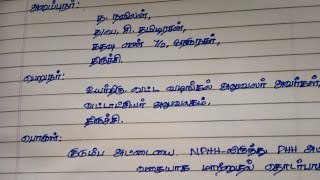 அனுப்புநர்:
த. நவிலன்,
த/பெ. சி. தமிழரசன்,
கதவு எண் 1/2,
திருச்சி.
பெறுநர்:
உயர்திரு வட்ட வழங்கல் அலுவலர் அவர்கள்,
வட்டாட்சியர் அலுவலகம்,
திருச்சி.
பொருள்:
குடும்ப அட்டையை NPHH-லிருந்து PHH அட்
வகையாக மாற்றுதல் தொடர்பாக